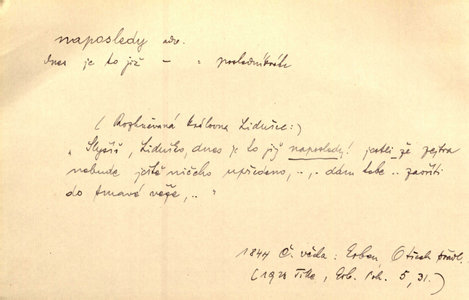 naposledy adv.
dnes je to již – „ posledníkráte
(Rozhněvaná královna Lidušce:)
„Slyšíš, Liduško, dnes je to již naposledy! jestli že zejtra
nebude ještě ničeho upředeno, .. . dám tebe .. zavříti
do tmavé věže, .. "
1844 Č. včela: Erben, O třech přádl.
(1924 Tille, Erb. Poh. 5, 31.)